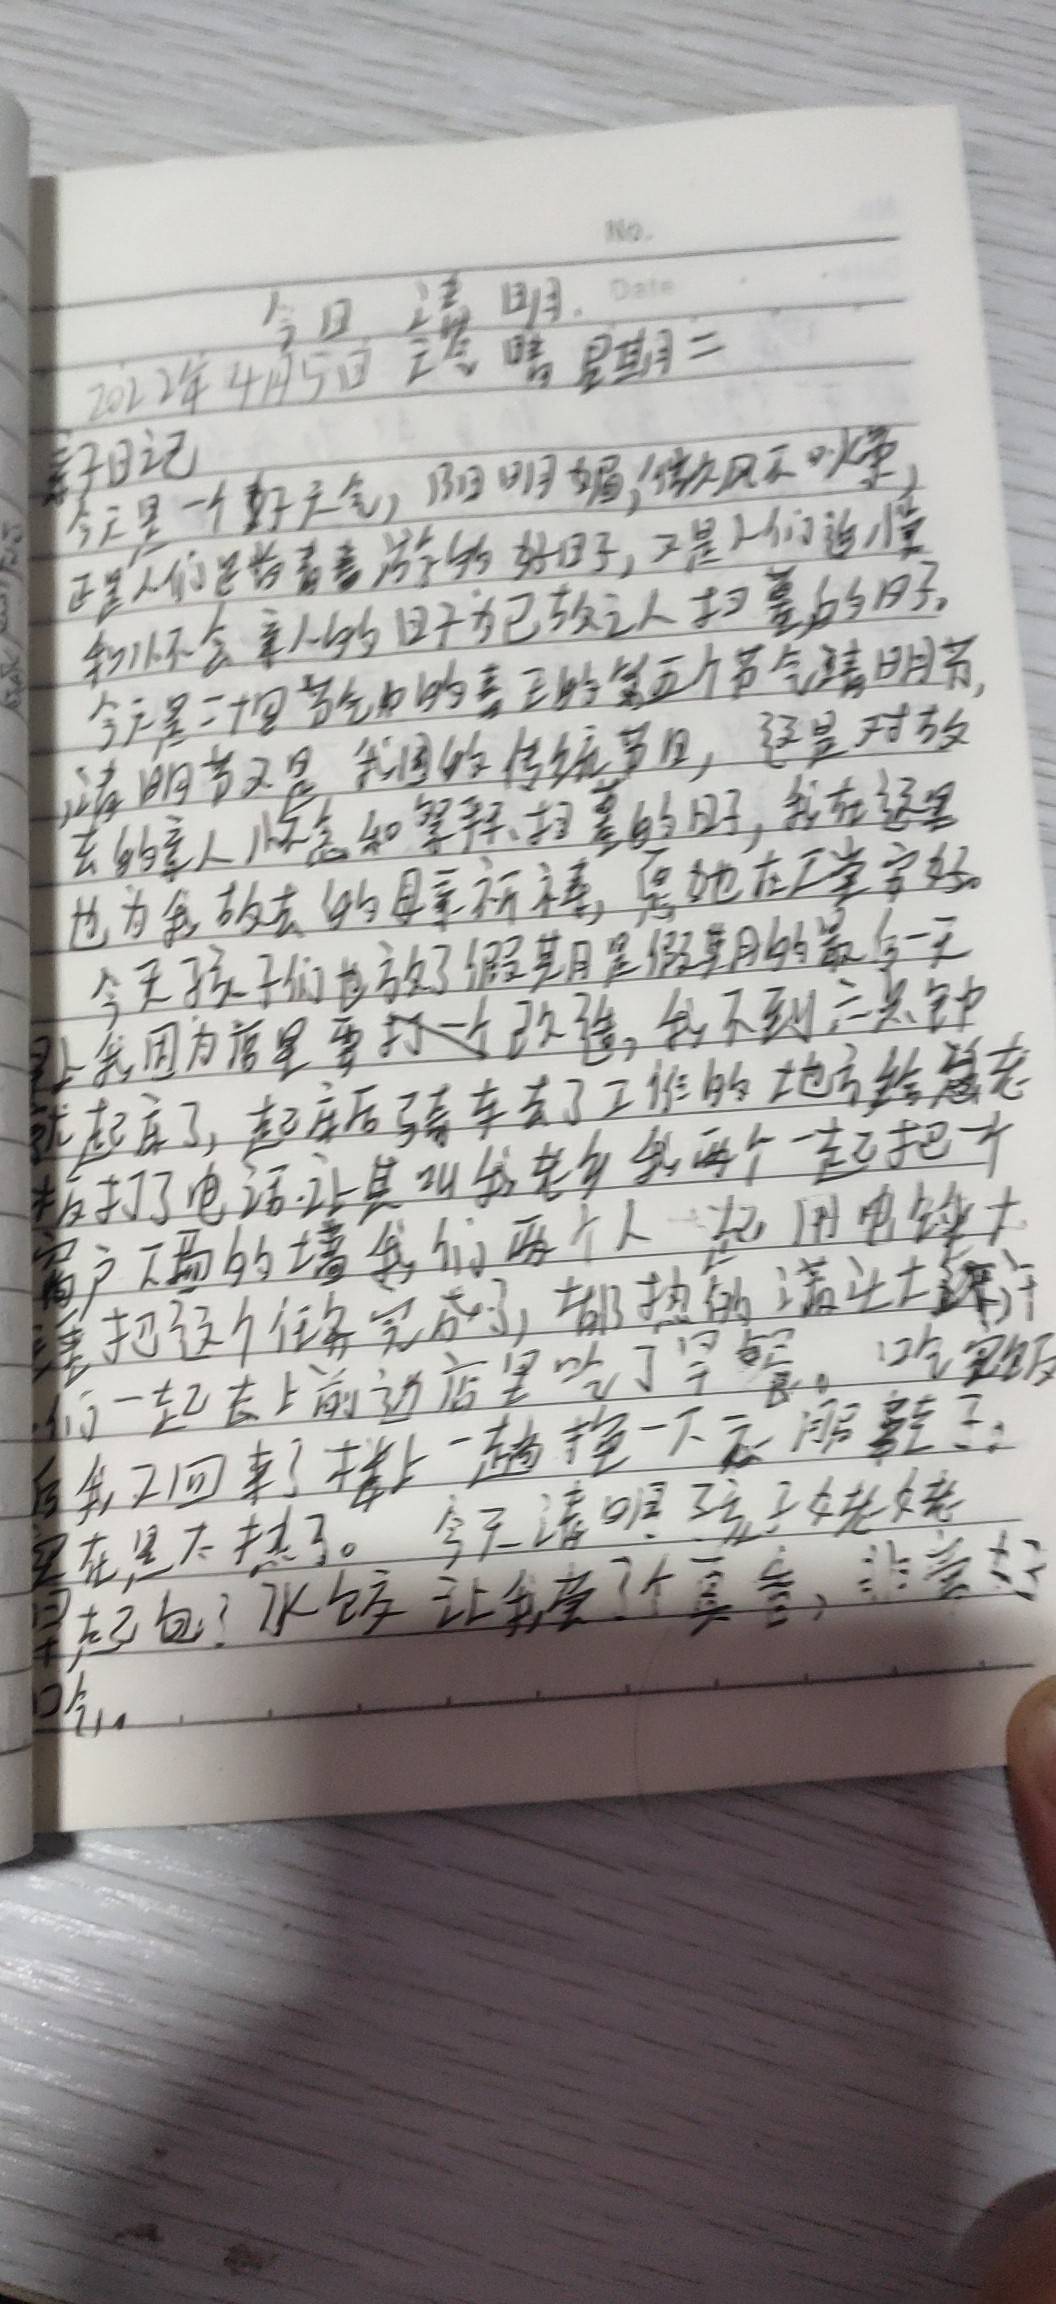 No.
Date
今日 清明.
2022年4月5日 天气 晴 星期二
亲子日记
今天是一个好天气,阳光明媚,微风不燥,
正是人们踏青的好日子,又是人们追憶
和怀念亲人的日子为已故之人扫墓的日子。
今天是二十四节气中的真正的第五个节气清明节,
清明节又是我国的传统节日,这是对故
去的亲人怀念和祭拜、扫墓的日子,我在这里
也为我故去的母亲祈祷,愿她在天堂安好。
今天孩子们也放了假期是假期的最后一天
早上我因为店里要打一个改造,我不到六点钟
就起床了,起床后骑车去了工作的地方给老
板打了电话.让其叫我老乡我两个一起把一个
窗户下面的墙我们两个人一起用电锤大
锤把这个任务完成了,都热的满头大汗
们一起去上前边店里吃了早餐。吃完饭
后我又回来了楼上一趟换一下衣服鞋子。
实在是太热了。 今天清明孩子姥姥
早起包了水饺让我尝了个真香,非常好
吃。